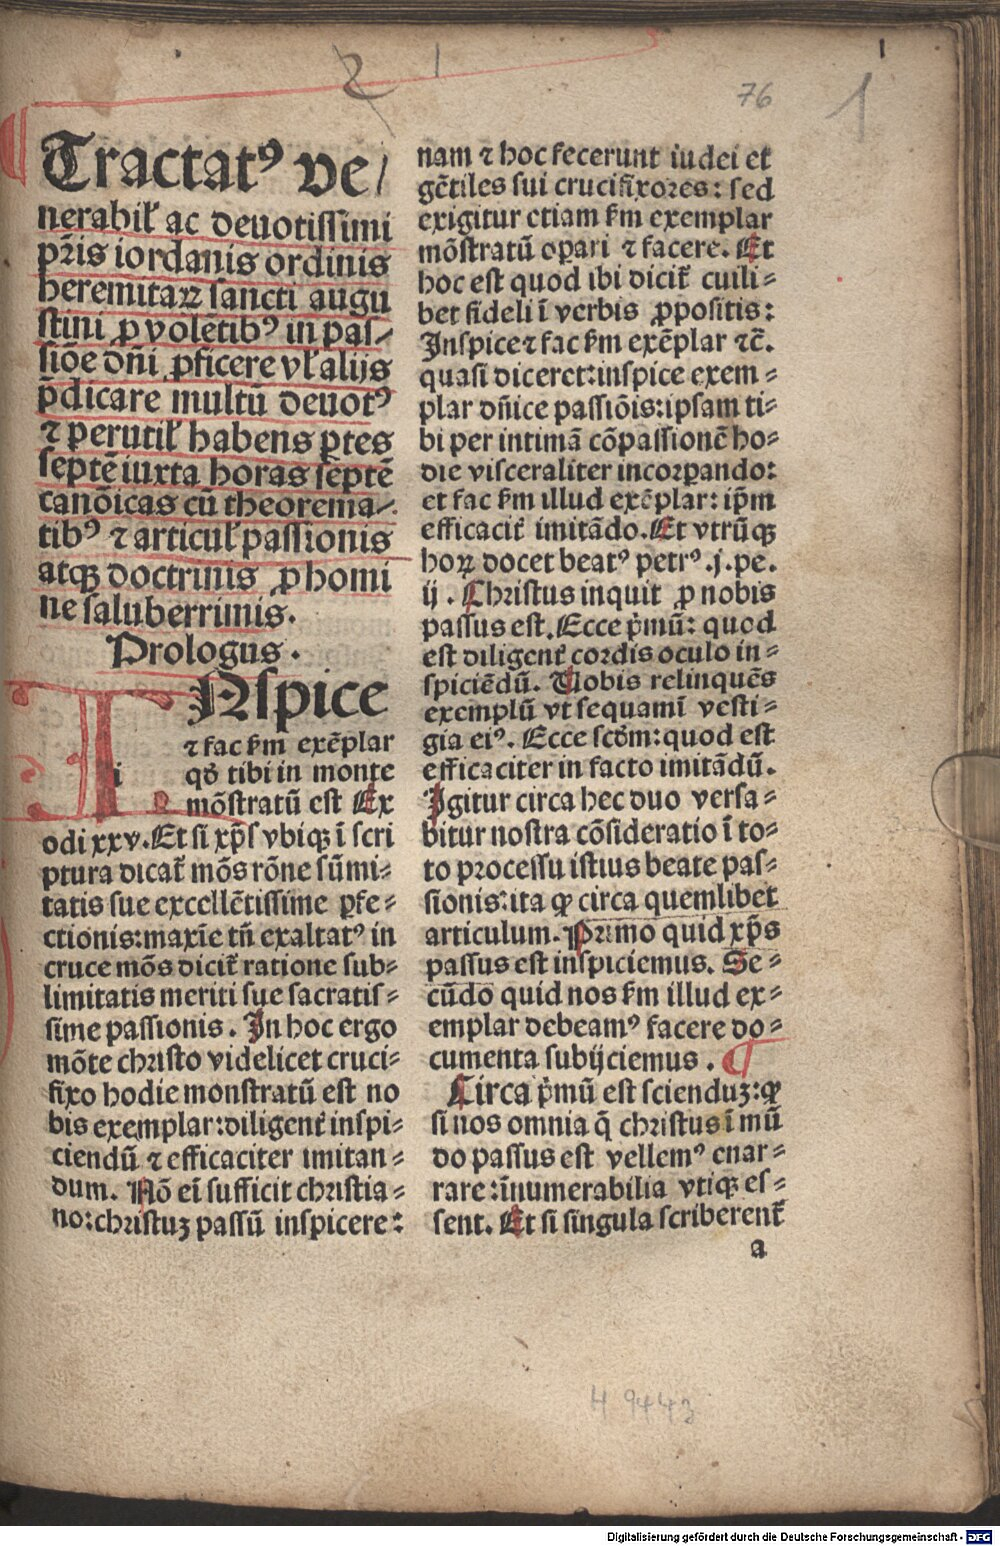 2 1
76
1
1
Tractatꝰ ve/
nerabilꝭ ac deuotissimi
pr̃is iordanis ordinis
heremitaꝝ sancti augu
stini ꝓ volẽtibꝰ in pas-
siõe dñi ꝓficere vl̕ alijs
p̄dicare multũ deuotꝰ
⁊ perutil̕ habens ꝑtes
septẽ iuxta horas septẽ
canõicas cũ theorema-
tibꝰ ⁊ articul̕ passionis
atqꝫ doctrinis ꝓ homi
ne saluberrimis.
Prologus.
INspice
⁊ fac ẜm exẽplar
i qđ tibi in monte
mõstratũ est Ex
odi xxv. Et si xp̃s vbiqꝫ ĩ scri
ptura dicat᷑ mõs rõne sũmi-
tatis sue excellẽtissime ꝑfe-
ctionis: maxĩe tñ exaltatꝰ in
cruce mõs dicit᷑ ratione sub-
limitatis meriti sue sacratis-
sime passionis. In hoc ergo
mõte christo videlicet cruci-
fixo hodie monstratũ est no
bis exemplar: diligent᷑ inspi-
ciendũ ⁊ efficaciter imitan-
dum. Nõ eĩ sufficit christia-
no: christuꝫ passũ inspicere:
nam ⁊ hoc fecerunt iudei et
gẽtiles sui crucifixores: sed
exigitur etiam ẜm exemplar
mõstratũ oꝑari ⁊ facere. Et
hoc est quod ibi dicit᷑ cuili-
bet fideli ĩ verbis ꝓpositis:
Inspice ⁊ fac ẜm exẽplar ⁊c̃.
quasi diceret: inspice exem-
plar dñice passiõis: ipsam ti-
bi per intimã cõpassionẽ ho-
die visceraliter incorꝑando:
et fac ẜm illud exẽplar: ip̃m
efficacit᷑ imitãdo. Et vtrũqꝫ
hoꝝ docet beatꝰ petrꝰ .j. pe.
ij. Christus inquit ꝓ nobis
passus est. Ecce p̄mũ: quod
est diligent᷑ cordis oculo in-
spiciẽdũ. Uobis relinquẽs
exemplũ vt sequamĩ vesti-
gia eiꝰ. Ecce scđm: quod est
efficaciter in facto imitãdũ.
Igitur circa hec duo versa-
bitur nostra cõsideratio ĩ to-
to processu istius beate pas-
sionis: ita ꝙ circa quemlibet
articulum. Primo quid xp̃s
passus est inspiciemus. Se-
cũdo quid nos ẜm illud ex-
emplar debeamꝰ facere do-
cumenta subijciemus. ¶
Circa p̄mũ est scienduꝫ: ꝙ
si nos omnia q̃ christus ĩ mũ
do passus est vellemꝰ enar-
rare: ĩnumerabilia vtiqꝫ es-
sent. Et si singula scriberent᷑
a
H 9443
Digitalisierung gefördert durch die Deutsche Forschungsgemeinschaft - DFG